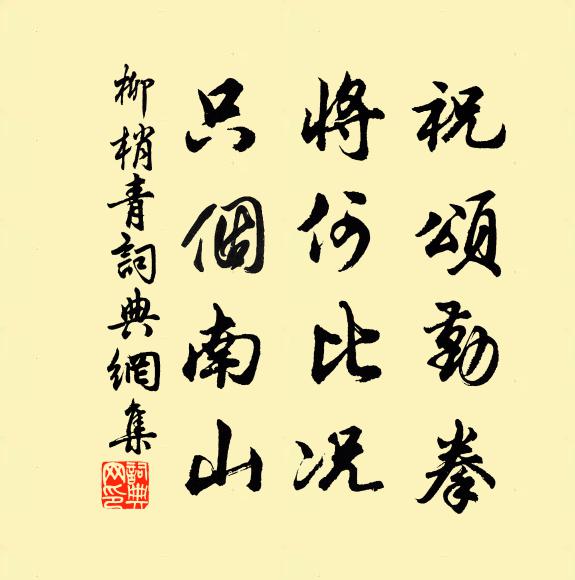 祝頌勤拳
將何比況
只個南山
柳梢青詞典網集
詞典網印